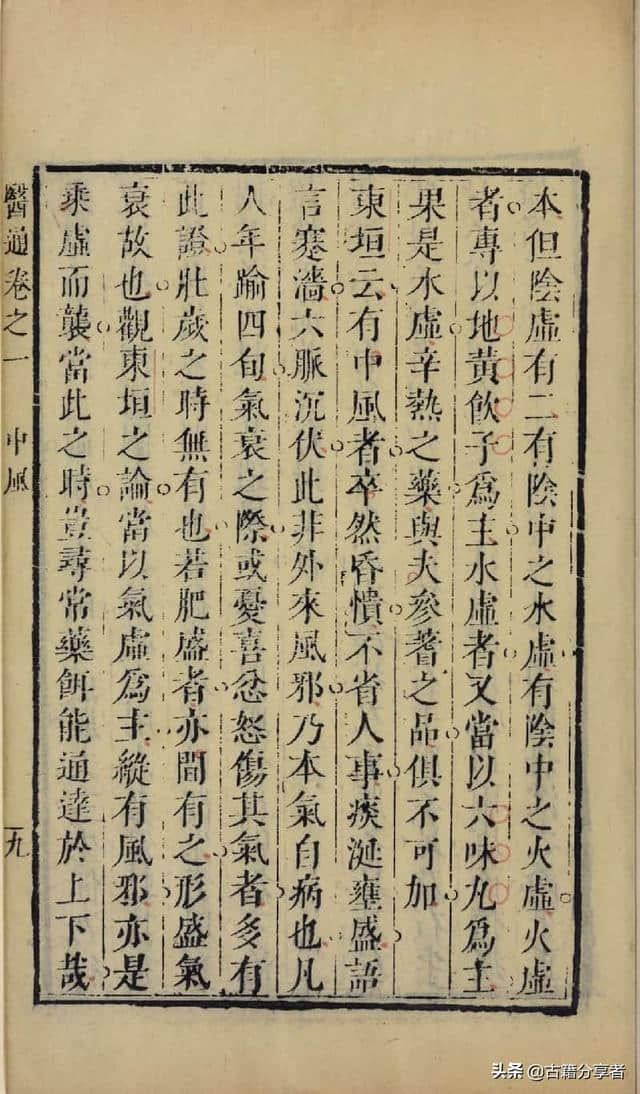 本但陰虛有二有陰中之水虛有陰中之火虛火虛
者專以地黃飲子為主水虛者又當以六味丸為主
果是水虛辛熱之藥與夫參蓍之品俱不可加
東垣云有中風者卒然昏憒不省人事痰涎壅盛語
言蹇濇六脈沉伏此非外來風邪乃本氣自病也凡
人年踰四旬氣衰之際或憂喜忿怒傷其氣者多有
此證壯歲之時無有也若肥盛者亦間有之形盛氣
衰故也觀東垣之論當以氣虛為主縱有風邪亦是
乘虛而襲當此之時豈尋常藥餌能通達於上下哉
醫通卷之一 中風 九
头条 @古籍分享者